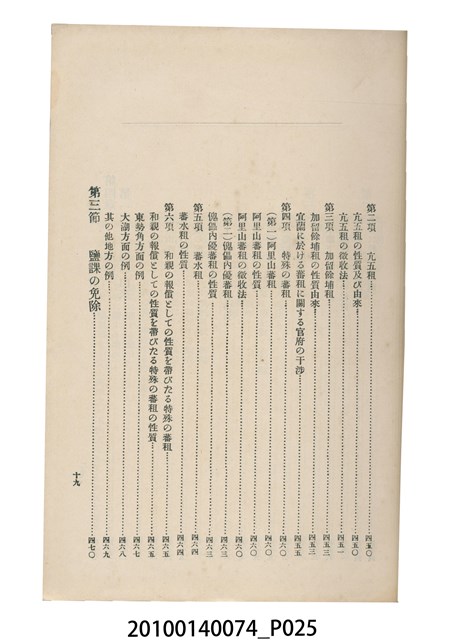 第二項 亢五租……四五〇
亢五租の性質及び由來……四五〇
亢五租の徵收法……四五一
第三項 加留餘埔租……四五三
加留餘埔租の性質由來……四五三
宜蘭に於ける蕃租に關する官府の干涉……四五五
第四項 特殊の蕃租……四六〇
(第一)阿里山蕃租……四六〇
阿里山蕃租の性質……四六〇
阿里山蕃租の徵收法……四六〇
(第二)傀儡內優蕃租……四六三
傀儡內優蕃租の性質……四六三
第五項 蕃水租……四六四
蕃水租の性質……四六四
第六項 和親の報償としての性質を帶びたる特殊の蕃租……四六五
和親の報償としての性質を帶びたる特殊の蕃租の性質……四六五
東勢角方面の例……四六七
大湖方面の例……四六八
其の他地方の例……四六九
第三節 鹽課の免除……四七〇
十九
20100140074_P025